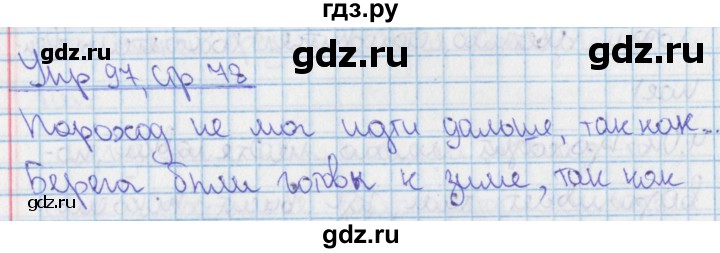 гдз.ру
gdz.ru gdz.ru
Упр 97, стр 78
gdz.ru gdz.ru gdz.ru
Пароход не мог идти дальше, так как...
Берега были готовы к зиме, так как
gdz.ru gdz.ru
гдз.ру